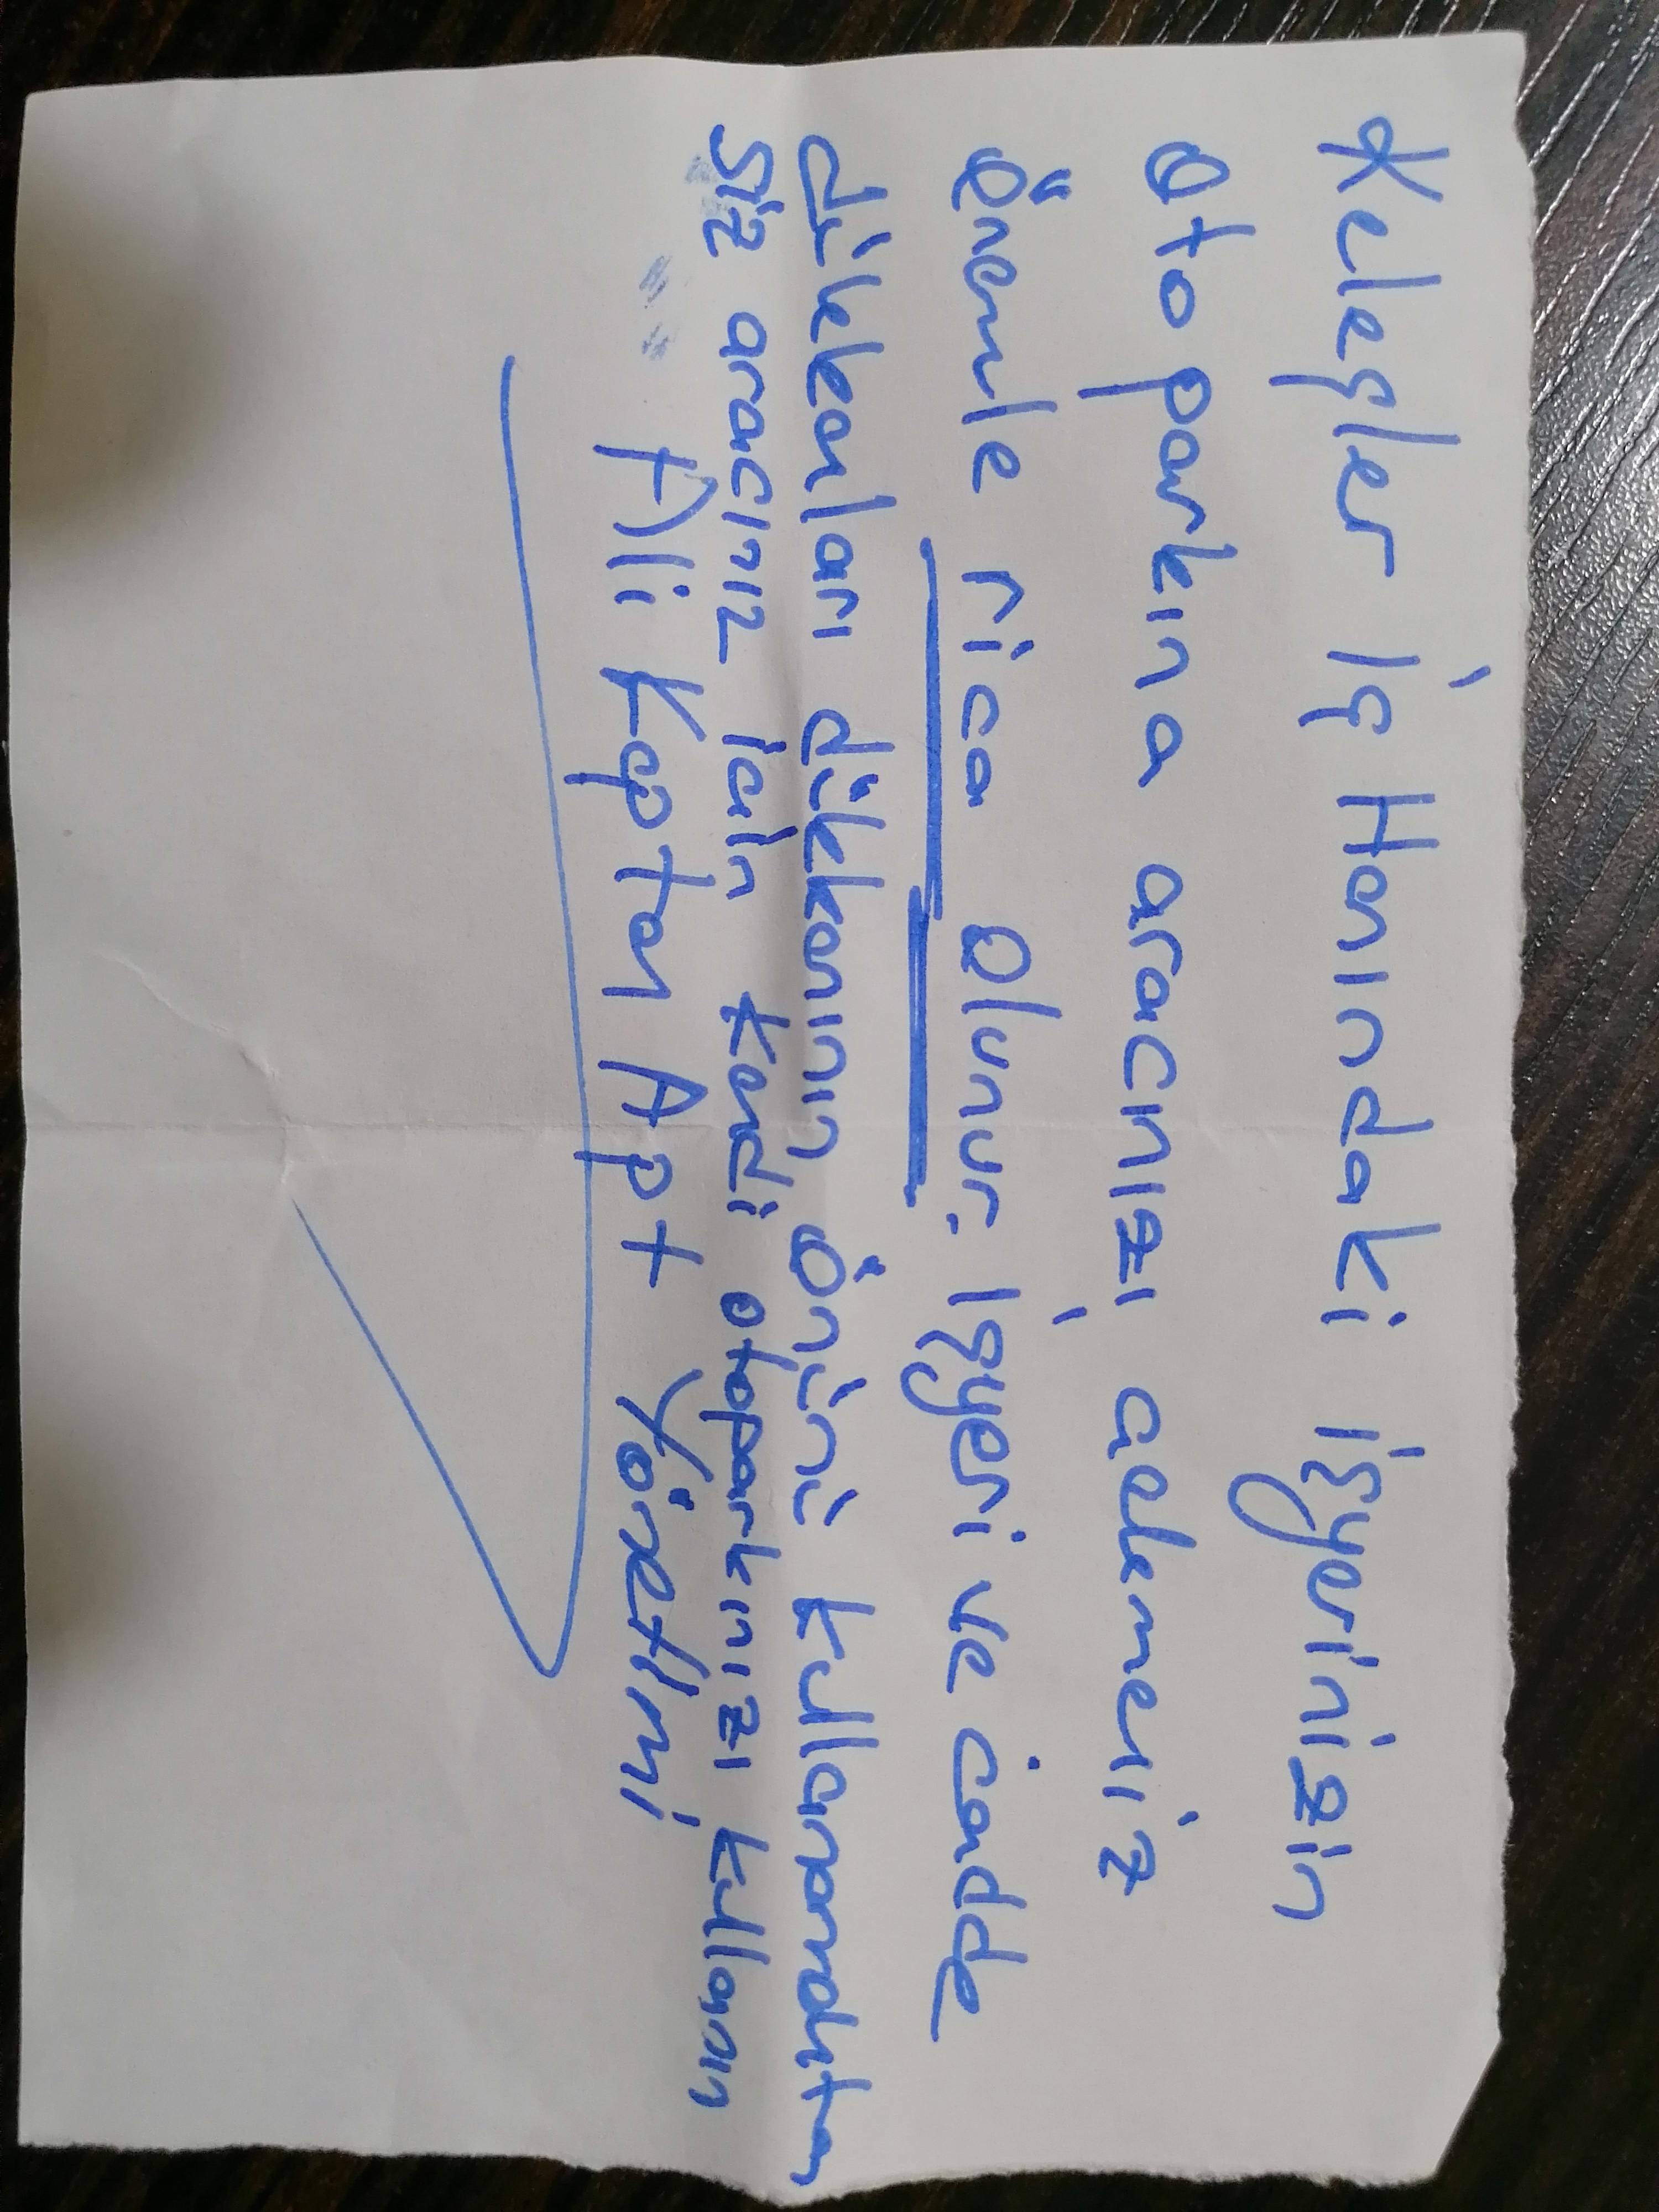 Keleşler İş Hanındaki işyerinizin
Otoparkına aracınızı çekmeniz
Önemle rica Olunur. İşyeri ve cadde
dükkanları dükkanının önünü kullanmakta
Siz aracınız için kendi otoparkınızı kullanın
Ali Kaptan Apt Yönetimi